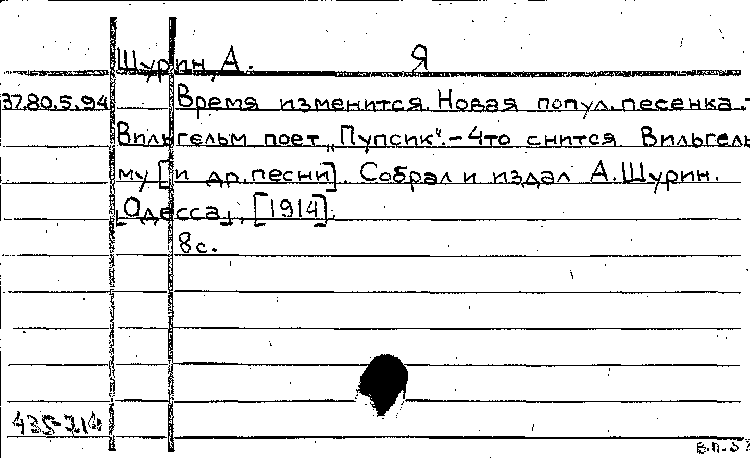 Щурин, А. Я
37.80.5.94 Время изменится. Новая попул. песенка.-
Вильгельм поет „Пупсик".-Что снится Вильгель
му [и др. песни]. Собрал и издал А. Щурин.
[Одесса], [1914].
8с.
435-214